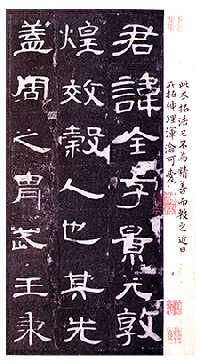 此本拓法已不爲精善而較之近日
所拓神理渾淪可愛
君諱全字景完敦
煌效穀人也其先
蓋周之胄武王秉